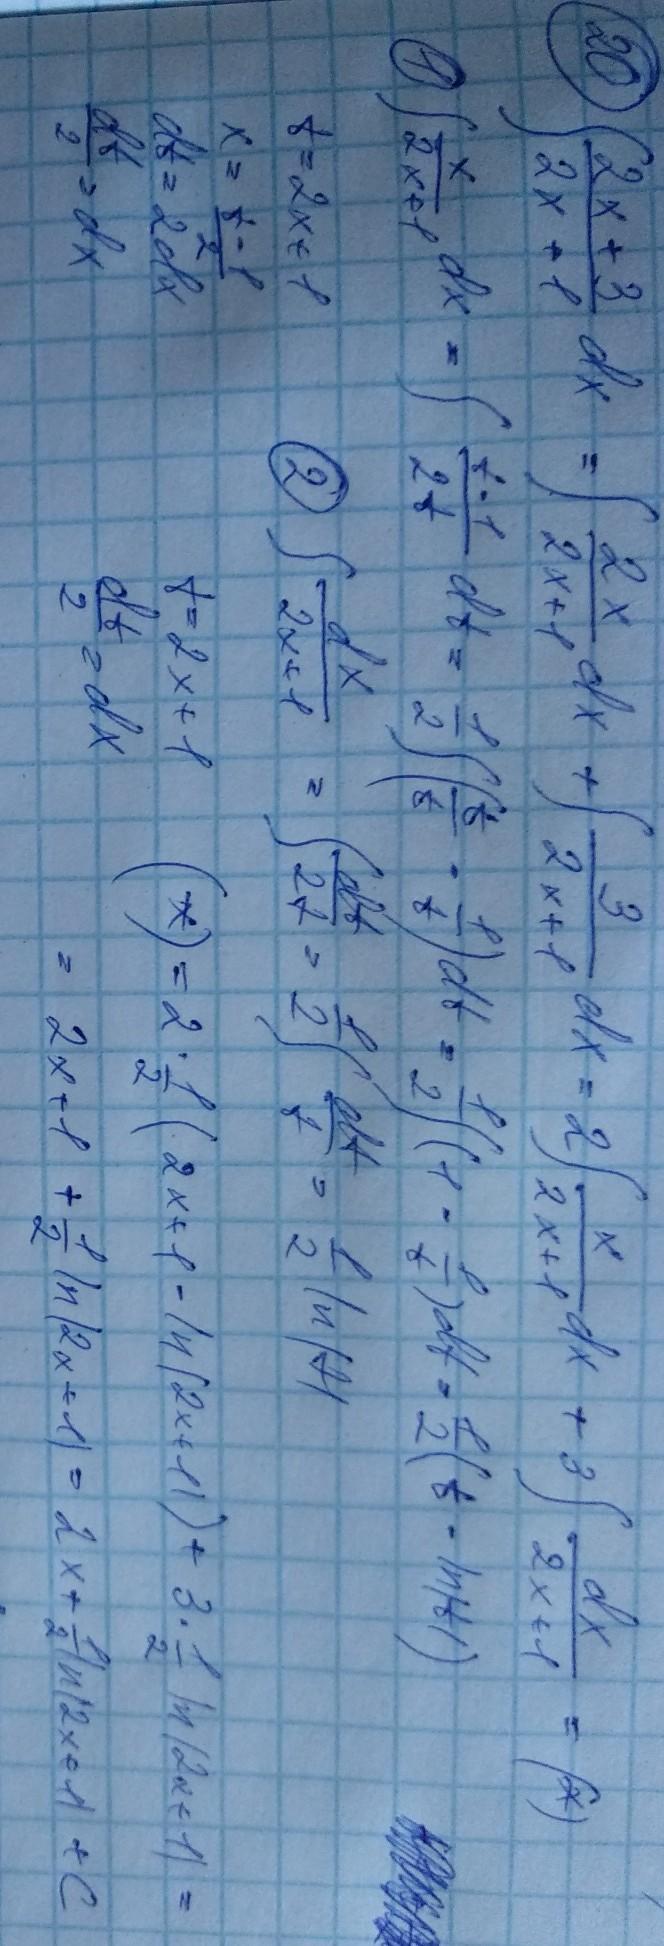 20 ∫ (2x+3)/(2x+1) dx = ∫ 2x/(2x+1) dx + ∫ 3/(2x+1) dx = 2∫ x/(2x+1) dx + 3∫ dx/(2x+1) = (*)
1 ∫ x/(2x+1) dx = ∫ (t-1)/2t dt = 1/2 ∫(t/t - 1/t)dt = 1/2 ∫(1 - 1/t)dt = 1/2 (t - ln|t|)
t = 2x+1
x = (t-1)/2
dt = 2dx
dt/2 = dx
2 ∫ dx/(2x+1) = ∫ dt/2t = 1/2 ∫ dt/t = 1/2 ln|t|
t = 2x+1
dt/2 = dx
(*) = 2·1/2 (2x+1 - ln|2x+1|) + 3·1/2 ln|2x+1| =
= 2x+1 + 1/2 ln|2x+1| = 2x + 1/2 ln|2x+1| + C